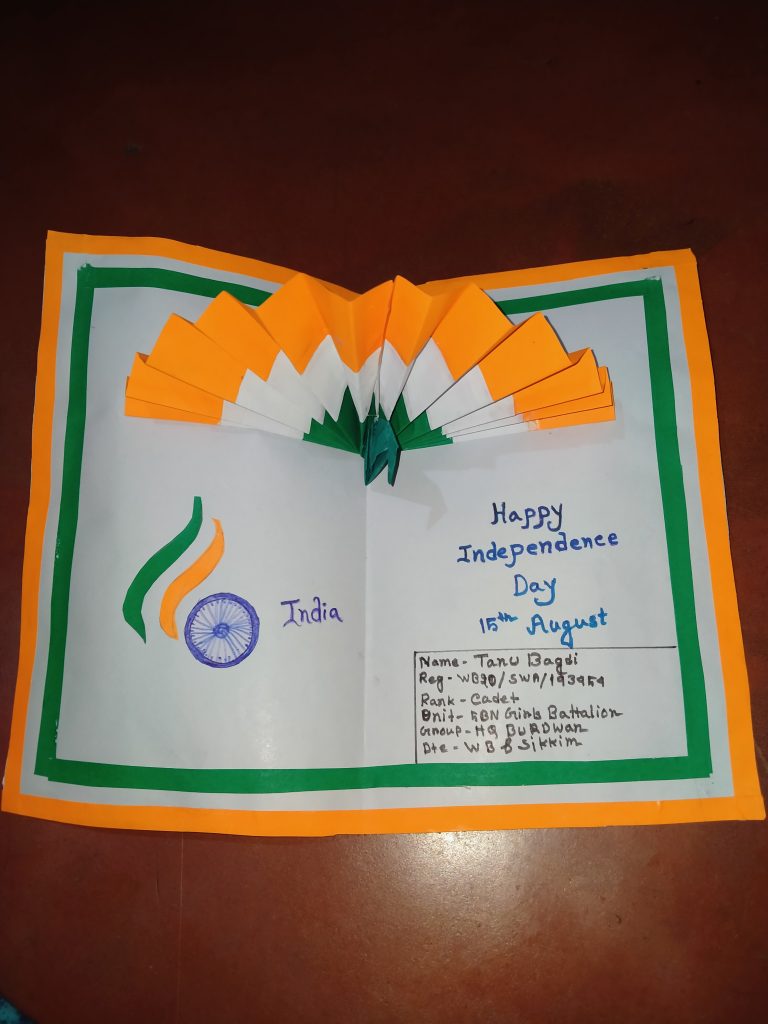 India
Happy
Independence
Day
15th August
Name - Tanu Bagdi
Reg - WB20/SWA/193959
Rank - Cadet
Unit - Girls Battalion
Group - HQ BURDWAN
Dte - WB & Sikkim